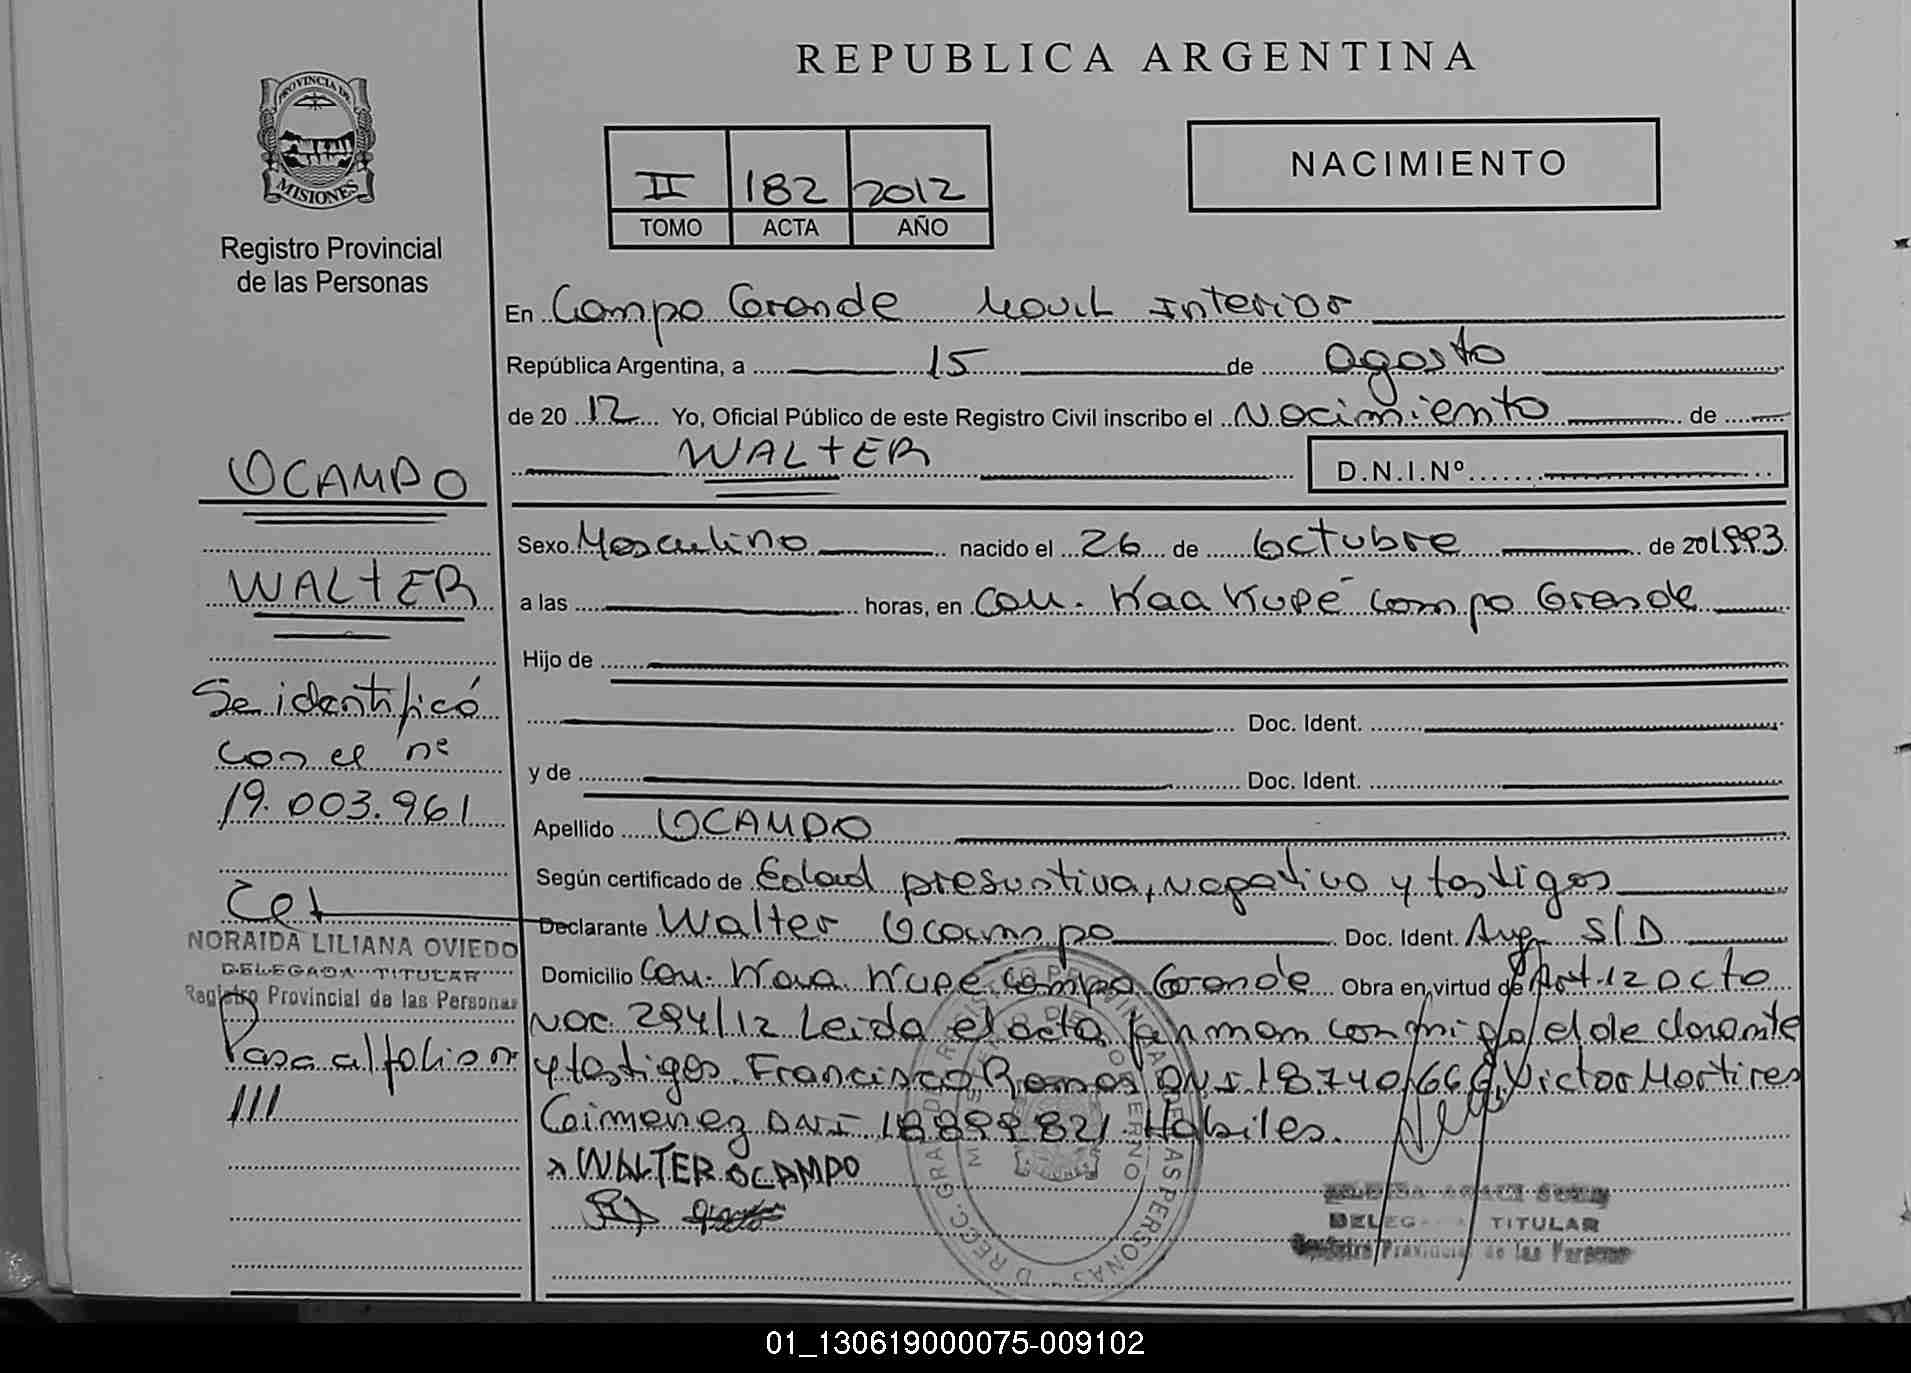 REPUBLICA ARGENTINA
PROVINCIA DE
MISIONES
Registro Provincial
de las Personas
II 182 2012
TOMO ACTA AÑO
NACIMIENTO
En Campo Grande Movil Interior
República Argentina, a 15 de agosto
de 20 12 Yo, Oficial Público de este Registro Civil inscribo el Nacimiento de
WALTER
D.N.I.Nº
Sexo Masculino nacido el 26 de Octubre de 201993
a las horas, en Com. Kaa Kupé Campo Grande
Hijo de
Doc. Ident.
y de Doc. Ident.
Apellido OCAMPO
Según certificado de Edad presuntiva, negativo y testigos
Declarante Walter Ocampo Doc. Ident. Arg. S/D
Domicilio Com. Kaa Kupé Campo Grande Obra en virtud de Art. 12 Dcto
Nac. 294/12 Leida el acta firman conmigo el declarante
y testigos Francisco Ramos DNI 18740666, Victor Martires
Gimenez DNI 18899821 Habiles.
x WALTER OCAMPO
DELEGADA TITULAR
Registro Provincial de las Personas
OCAMPO
WALTER
Se identificó
con el nº
19.003.961
NORAIDA LILIANA OVIEDO
DELEGADA TITULAR
Registro Provincial de las Personas
Pasa al folio nº
111
01_130619000075-009102